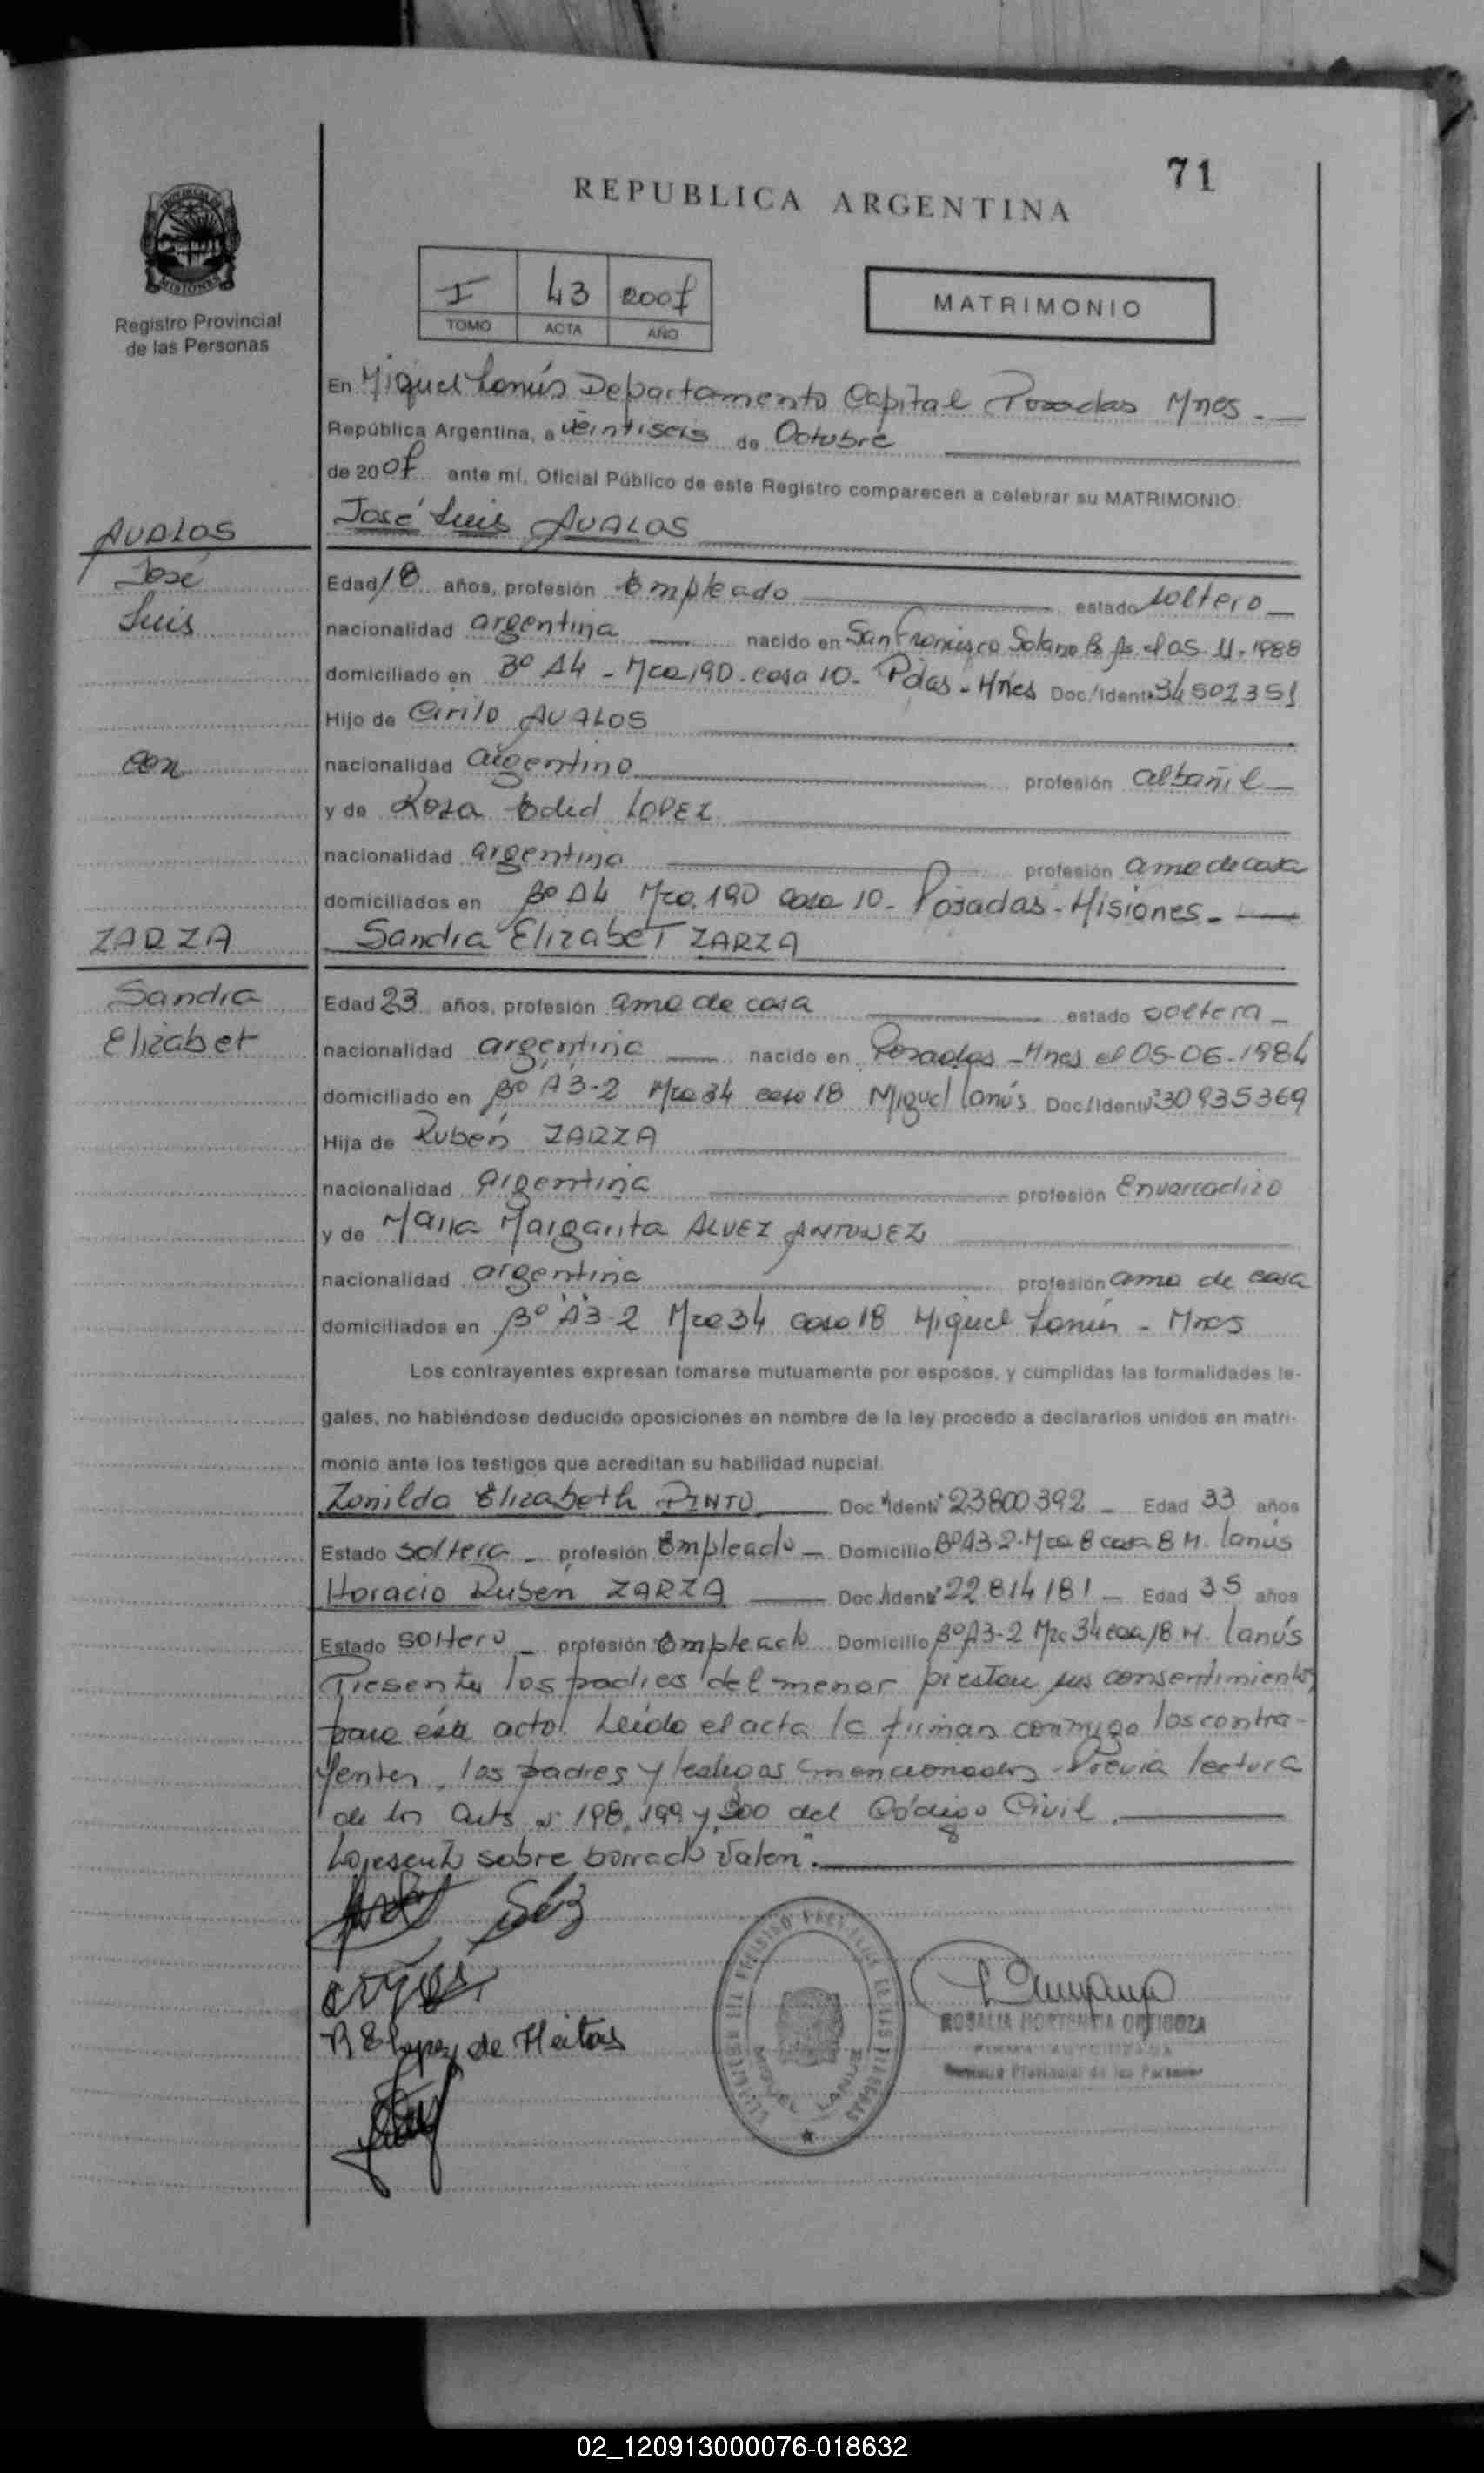 71
REPUBLICA ARGENTINA
I 43 2007
TOMO ACTA AÑO
MATRIMONIO
Registro Provincial
de las Personas
En Miguel Lanús Departamento Capital Posadas Mnes.
República Argentina, a veintiseis de Octubre
de 2007 ante mí, Oficial Público de este Registro comparecen a celebrar su MATRIMONIO:
José Luis AVALOS
AVALOS
José
Luis
con
ZARZA
Sandra
Elizabet
Edad 18 años, profesión Empleado estado soltero
nacionalidad argentina nacido en San Francisco Solano Bs As. el 05-11-1988
domiciliado en Bº A4 - Mza 190. casa 10- Pdas - Mnes Doc/Ident 34502351
Hijo de Cirilo AVALOS
nacionalidad argentino profesión albañil
y de Rosa Edid LOPEZ
nacionalidad argentina profesión ama de casa
domiciliados en Bº A4 Mza. 190 casa 10- Posadas - Misiones -
Sandra Elizabet ZARZA
Edad 23 años, profesión ama de casa estado soltera
nacionalidad argentina nacido en Posadas - Mnes el 05-06-1984
domiciliado en Bº A3-2 Mza 34 casa 18 Miguel Lanús Doc/Ident Nº 30935369
Hija de Rubén ZARZA
nacionalidad Argentina profesión Envarcadizo
y de María Margarita ALVEZ ANTUNEZ
nacionalidad argentina profesión ama de casa
domiciliados en Bº A3-2 Mza 34 casa 18 Miguel Lanús - Mnes
Los contrayentes expresan tomarse mutuamente por esposos, y cumplidas las formalidades le-
gales, no habiéndose deducido oposiciones en nombre de la ley procedo a declararlos unidos en matri-
monio ante los testigos que acreditan su habilidad nupcial
Zonilda Elizabeth PINTO Doc. Ident Nº 23800392 - Edad 33 años
Estado soltera - profesión Empleada - Domicilio Bº A3-2-Mza 8 casa 8 M. Lanús
Horacio Rubén ZARZA Doc. Ident Nº 22.814181 - Edad 35 años
Estado soltero - profesión Empleado Domicilio Bº A3-2 Mza 34 casa 18 M. Lanús
Presentes los padres del menor prestan sus consentimientos
para este acto. Leído el acta la firman conmigo los contra-
yentes, los padres y testigos mencionados - Previa lectura
de los Arts Nº 198, 199 y 200 del Código Civil
Lo escrito sobre borrado "8 Valen".
R E Lopez de
ROSALIA HORTENSIA ORTIGOZA
FIRMA AUTORIZADA
Registro Provincial de las Personas
MIGUEL LANUS
02_120913000076-018632